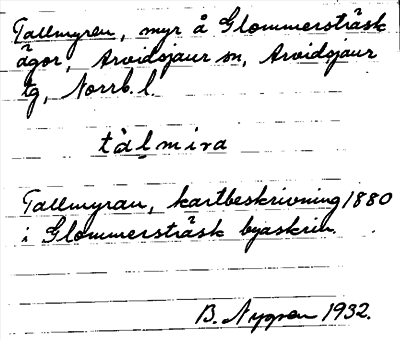 Tallmyren, myr å Glommersträsk
ägor, Arvidsjaur sn, Arvidsjaur
tg, Norrb. l.
tàl̥mira
Tallmyran, kartbeskrivning 1880
i Glommersträsk byaskrin.
B. Nygren 1932.